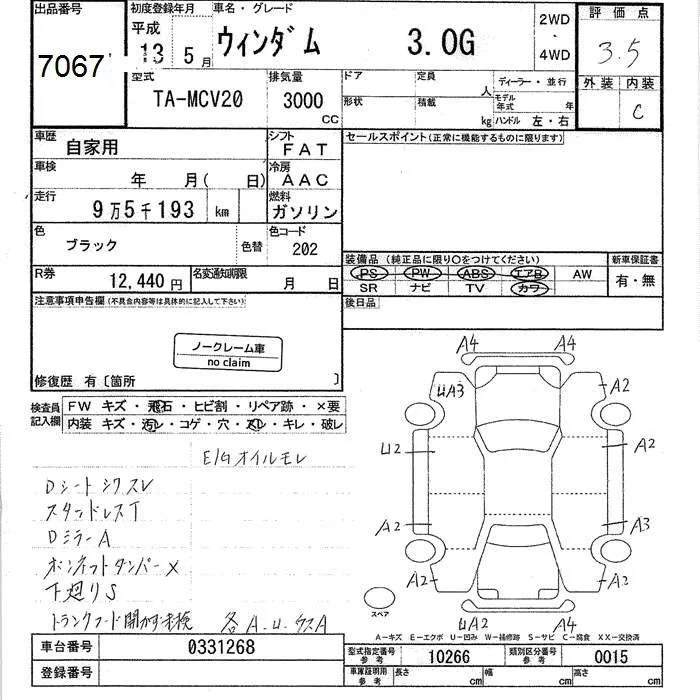 出品番号
7067
初度登録年月
平成
13 5 月
車名・グレード
ウィンダム 3.0G
2WD
・
4WD
評価点
3.5
外装 内装
C
型式
TA-MCV20
排気量
3000
CC
ドア
定員
人
ディーラー・並行
形状
積載
kg
モデル年式 年
ハンドル 左・右
車歴
自家用
シフト
FAT
車検
年 月( 日)
冷房
AAC
走行
9万5千193 km
燃料
ガソリン
色
ブラック
色替
色コード
202
R券
12,440 円
名変通知期限
月 日
セールスポイント(正常に機能するものに限ります)
装備品 (純正品に限り○をつけてください)
PS PW ABS エアB AW
SR ナビ TV カワ
新車保証書
有・無
後日品
注意事項申告欄 (不具合内容等は具体的に記入して下さい)
ノークレーム車
no claim
修復歴 有 〔箇所 〕
検査員
記入欄
FW キズ・飛石・ヒビ割・リペア跡・×要
内装 キズ・汚レ・コゲ・穴・スレ・キレ・破レ
E/Gオイルモレ
Dシートシワスレ
スタッドレスT
DミラーA
ボンネットダンパー×
下廻りS
トランクフード開かず未検
各A.U.
A4 A4
UA3 A2
U2 A2
A2 A3
A2 A2
UA2 A4
スペア
A-キズ E-エクボ U-凹み W-補修跡 S-サビ C-腐食 XX-交換済
車台番号
0331268
登録番号
型式指定番号
参考
10266
類別区分番号
参考
0015
車庫証明用
参考
長さ cm
幅 cm
高さ cm